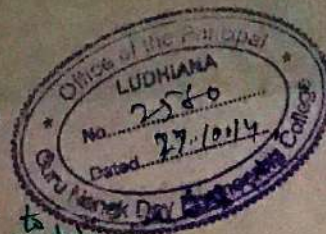 Office of the Principal
LUDHIANA
No. 2580
Dated 27.10.14
Guru Nanak Dev Engineering College
to